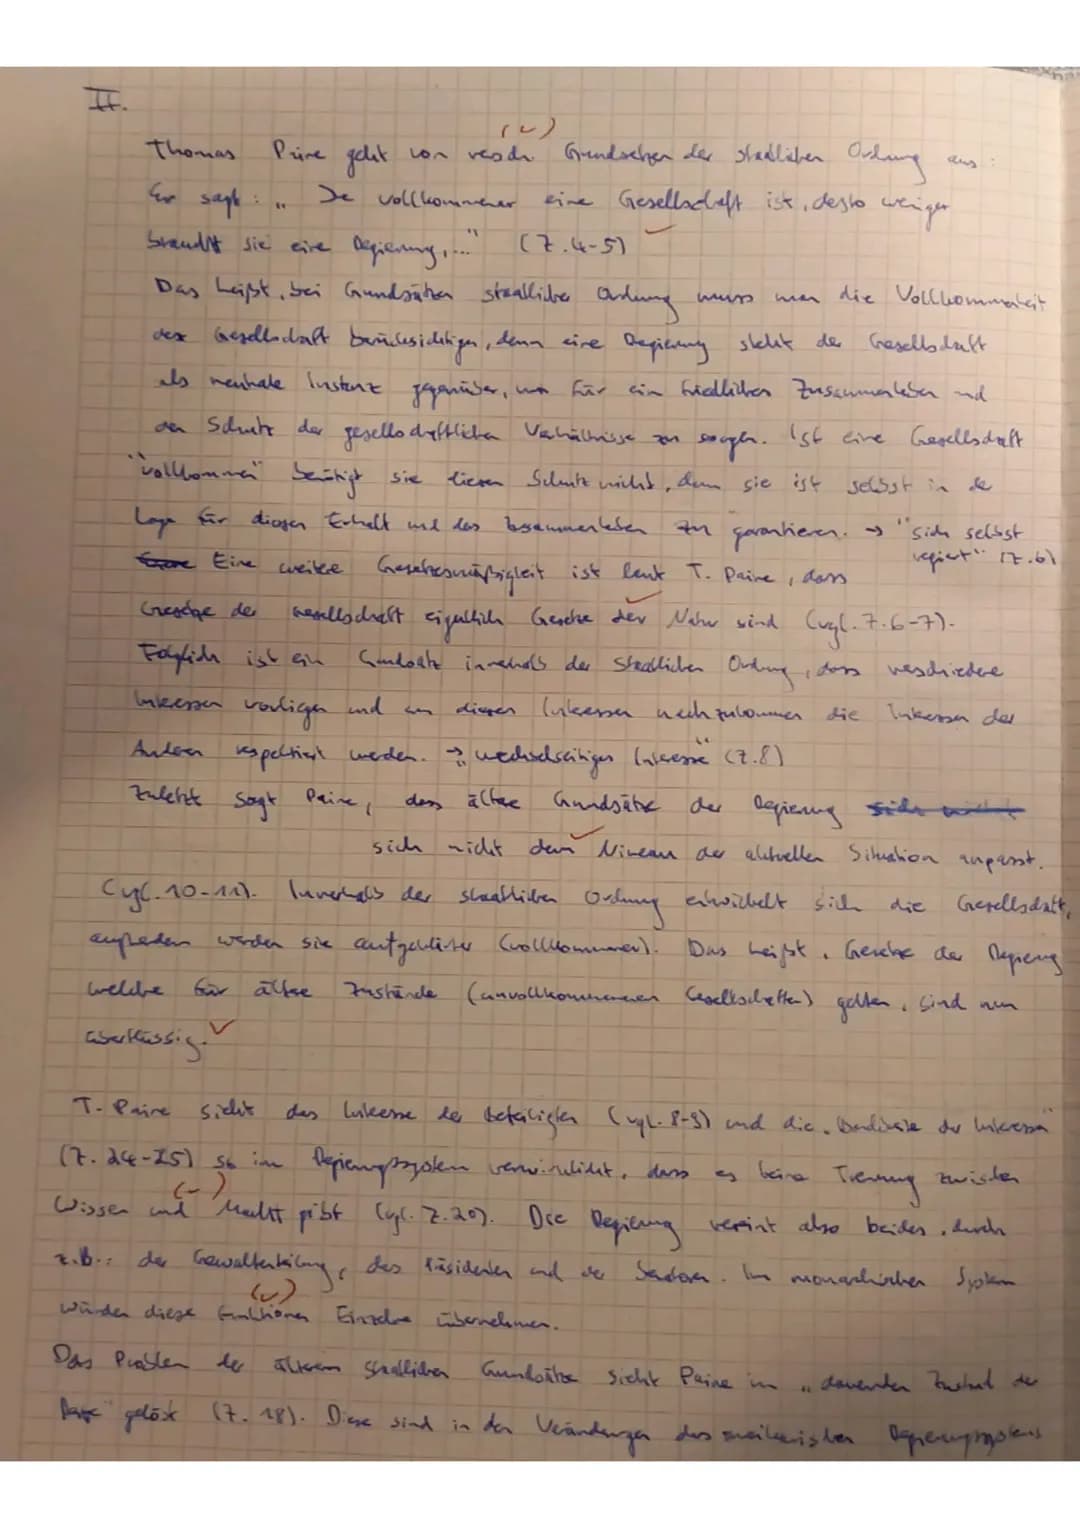 II.
Thomas Paine geht von versch. Grundsetzen der staatlichen Ordnung aus:
Er sagt: „Je vollkommener eine Gesellschaft ist, desto weniger
braucht sie eine Regierung,..." (Z.4-5)
Das heißt, bei Grundsätzen staatlicher Ordnung muss man die Vollkommenheit
der Gesellschaft berücksichtigen, denn eine Regierung steht der Gesellschaft
als neutrale Instanz gegenüber, um für ein friedliches Zusammenleben und
den Schutz der gesellschaftlichen Verhältnisse zu sorgen. Ist eine Gesellschaft
"vollkommen" benötigt sie diesen Schutz nicht, denn sie ist selbst in der
Lage für diesen Erhalt und das Zusammenleben zu garantieren. → "sich selbst
regiert" (Z.6)
Eine weitere Gesetzesmäßigkeit ist laut T. Paine, dass
Gesetze der Gesellschaft eigentlich Gesetze der Natur sind (vgl. Z.6-7).
Folglich ist ein Grundsatz innerhalb der Staatlichen Ordnung, dass verschiedene
Interessen vorliegen und um diesen Interessen nachzukommen die Interessen der
Anderen respektiert werden. → „wechselseitiges Interesse" (Z.8)
Zuletzt sagt Paine, dass ältere Grundsätze der Regierung
sich nicht dem Niveau der aktuellen Situation anpasst.
(vgl. 10-11). Innerhalb der staatlichen Ordnung entwickelt sich die Gesellschaft,
außerdem werden sie aufgeklärter (vollkommener). Das heißt, Gesetze der Regierung
welche für ältere Zustände (unvollkommenen Gesellschaften) galten, sind nun
überflüssig.
T. Paine sieht das Interesse der Beteiligten (vgl. 8-9) und die der Interessen"
(Z. 24-25) so im Regierungssystem verwirklicht, dass es keine Trennung zwischen
Wissen und Macht gibt (vgl. Z.20). Die Regierung vereint also beides, durch
z.B.: der Gewaltenteilung, des Präsidenten und der Senatoren. Im monarchischen System
würden diese Funktionen Einzelne übernehmen.
Das Problem der älteren staatlichen Grundsätze sieht Paine im „dauernden Zustand der
gelöst (Z. 18). Diese sind in den Veränderungen des amerikanischen Regierungssystems